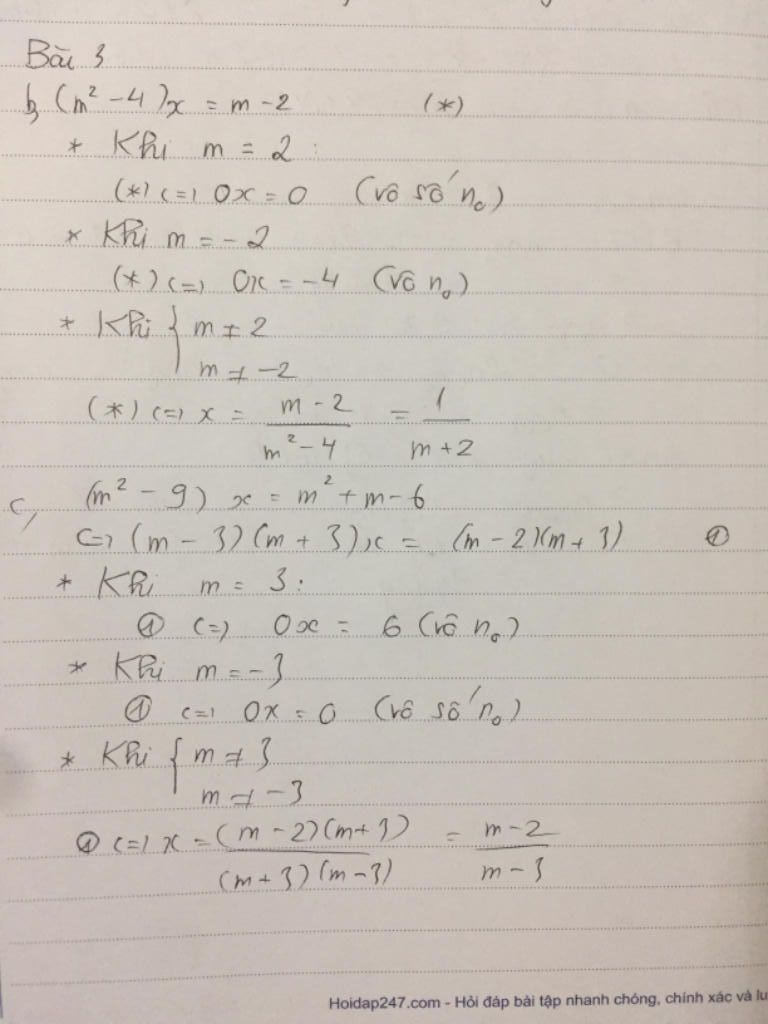 Bài 3
b, (m² - 4)x = m - 2 (*)
* Khi m = 2 :
(*) <=> 0x = 0 (vô số n₀)
* Khi m = - 2
(*) <=> 0x = -4 (vô n₀)
* Khi { m ≠ 2
m ≠ -2
(*) <=> x = (m - 2)/(m² - 4) = 1/(m + 2)
c, (m² - 9) x = m² + m - 6
<=> (m - 3)(m + 3)x = (m - 2)(m + 3) ①
* Khi m = 3 :
① <=> 0x = 6 (vô n₀)
* Khi m = -3
① <=> 0x = 0 (vô số n₀)
* Khi { m ≠ 3
m ≠ -3
① <=> x = (m - 2)(m + 3)/(m + 3)(m - 3) = (m - 2)/(m - 3)
Hoidap247.com - Hỏi đáp bài tập nhanh chóng, chính xác và